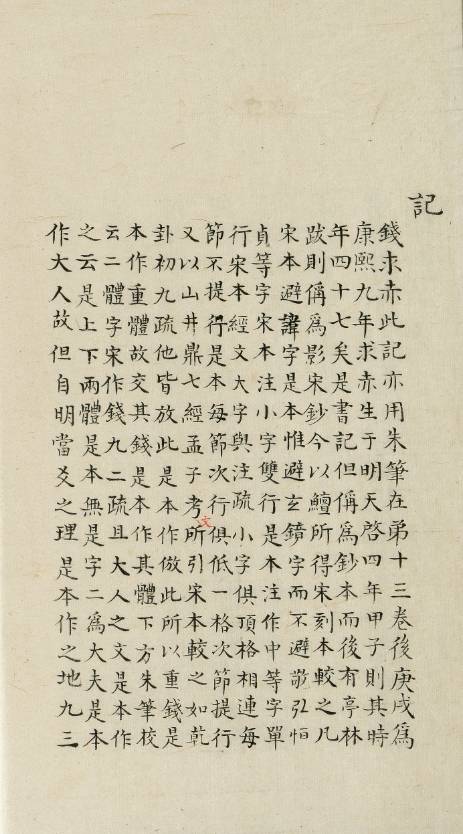 記
錢求赤此記亦用朱筆在弟十三卷後庚戌爲
康熙九年求赤生于明天啓四年甲子則其時
年四十七矣是書記但偁爲鈔本而後有亭林
跋則偁爲影宋鈔今以鱣所得宋刻本較之凡
宋本避諱字是本惟避玄鏡字而不避敬弘恒
貞等字宋本注小字雙行是本注作中等字單
行宋本經文大字與注疏小字俱頂格相連每
節不提得是本每節次行俱低一格次節提行
又以山井鼎七經孟子考文所引宋本較之如乾
卦初九疏他皆放此是本作倣此所以重錢是
本作重體故交其錢是本作其體下方朱筆校
云二體字宋作錢九二疏且大人之文是本作
之云是上下兩體是本無是字二爲大夫是本
作大人故但自明當爻之理是本作之地九三